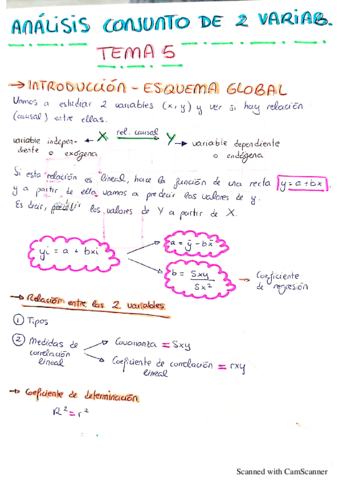 ANÁLISIS CONJUNTO DE 2 VARIAB.
TEMA 5
→ INTRODUCCIÓN - ESQUEMA GLOBAL
Vamos a estudiar 2 variables (x, y) y ver si hay relación
(causal) entre ellas.
variable indepen- ← X rel. causal Y → variable dependiente
diente o exógena o endógena
Si esta relación es lineal, hace la función de una recta y = a + bx,
y a partir de ella, vamos a predecir los valores de y.
Es decir, los valores de Y a partir de X.
yi = a + bxi
a = ȳ - bx̄
b = Sxy / Sx² → Coeficiente de regresión
→ Relación entre las 2 variables
① Tipos
② Medidas de correlación lineal
Covarianza = Sxy
Coeficiente de correlación lineal = rxy
→ Coeficiente de determinación
R² = r²
Scanned with CamScanner